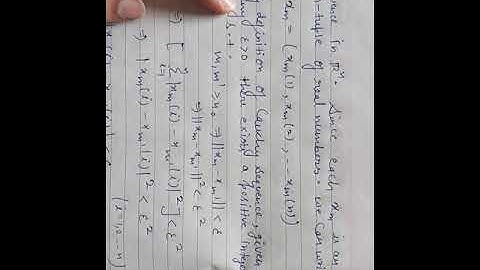 ence in Rⁿ. Since each xm is an
n-tuple of real numbers. we can wri
xm = (xm(1), xm(2), ... xm(n))
definition of Cauchy sequence, given
any ε>0 there exists a positive intege
s.t.
m, m' ≥ n₀ ⇒ ||xm - xm'|| < ε
⇒ ||xm - xm'||² < ε²
⇒ [ Σ |xm(i) - xm'(i)|² ] < ε²
i=1
⇒ |xm(i) - xm'(i)|² < ε²
(i=1,2,...n)